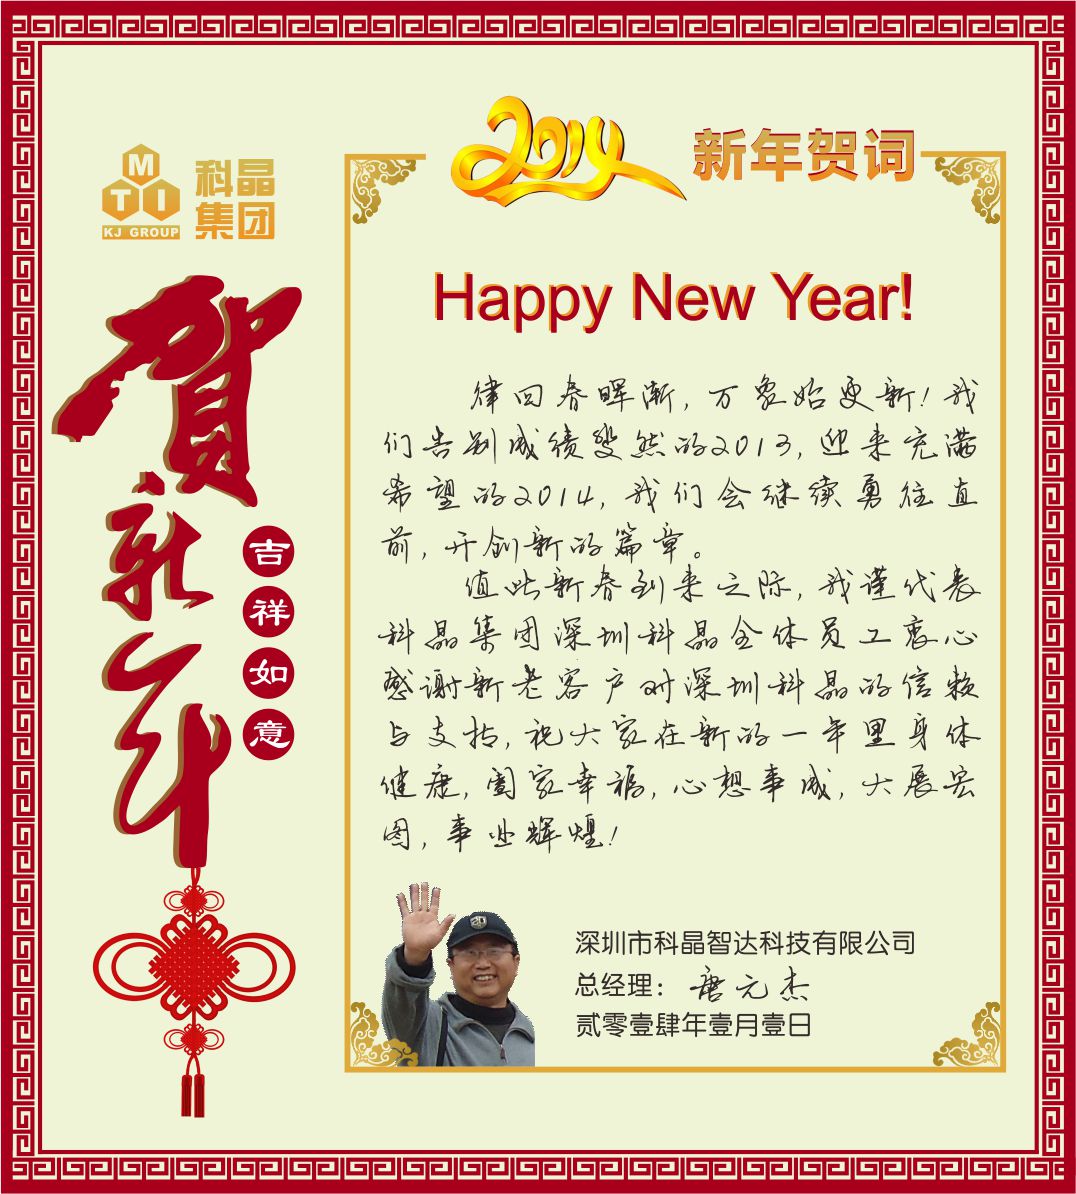 MTI
KJ GROUP
科晶
集团
贺新年
吉祥如意
2014 新年贺词
Happy New Year!
律回春晖渐，万象始更新！我
们告别成绩斐然的2013，迎来充满
希望的2014，我们会继续勇往直
前，开创新的篇章。
值此新春到来之际，我谨代表
科晶集团深圳科晶全体员工衷心
感谢新老客户对深圳科晶的信赖
与支持，祝大家在新的一年里身体
健康，阖家幸福，心想事成，大展宏
图，事业辉煌！
深圳市科晶智达科技有限公司
总经理：唐元杰
贰零壹肆年壹月壹日